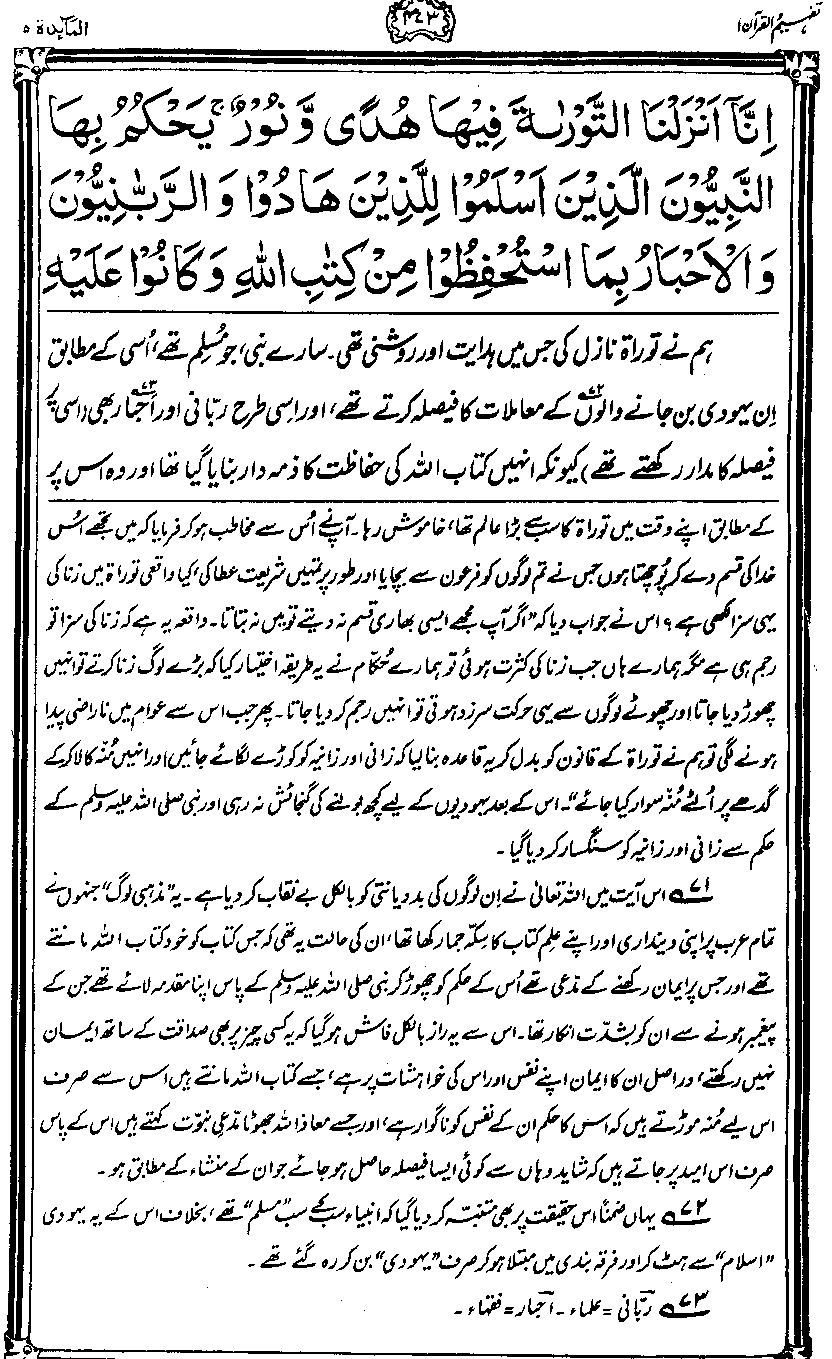 تفہیم القرآن ۱
۴۷۳
المآئدۃ ۵
اِنَّاۤ اَنْزَلْنَا التَّوْرٰىةَ فِیْهَا هُدًى وَّ نُوْرٌ ۚ یَحْكُمُ بِهَا
النَّبِیُّوْنَ الَّذِیْنَ اَسْلَمُوْا لِلَّذِیْنَ هَادُوْا وَ الرَّبّٰنِیُّوْنَ
وَ الْاَحْبَارُ بِمَا اسْتُحْفِظُوْا مِنْ كِتٰبِ اللّٰهِ وَ كَانُوْا عَلَیْهِ
ہم نے توراۃ نازل کی جس میں ہدایت اور روشنی تھی۔ سارے نبی، جو مُسلِم تھے، اُسی کے مطابق
اِن یہودی بن جانے والوں۷۲ کے معاملات کا فیصلہ کرتے تھے، اور اِسی طرح ربّانی اور اَحبار۷۳ بھی (اسی پر
فیصلہ کا مدار رکھتے تھے) کیونکہ انہیں کتاب اللہ کی حفاظت کا ذمہ دار بنایا گیا تھا اور وہ اس پر
کے مطابق اپنے وقت میں توراۃ کا سب سے بڑا عالم تھا، خاموش رہا۔ آپ نے اُس سے مخاطب ہو کر فرمایا کہ میں تجھے اُس
خدا کی قسم دے کر پُوچھتا ہوں جس نے تم لوگوں کو فرعون سے بچایا اور طور پر تمہیں شریعت عطا کی، کیا واقعی توراۃ میں زنا کی
یہی سزا لکھی ہے؟ اس نے جواب دیا کہ ”اگر آپ مجھے ایسی بھاری قسم نہ دیتے تو میں نہ بتاتا۔ واقعہ یہ ہے کہ زنا کی سزا تو
رجم ہی ہے مگر ہمارے ہاں جب زنا کی کثرت ہوئی تو ہمارے حُکّام نے یہ طریقہ اختیار کیا کہ بڑے لوگ زنا کرتے تو انہیں
چھوڑ دیا جاتا اور چھوٹے لوگوں سے یہی حرکت سرزد ہوتی تو انہیں رجم کر دیا جاتا۔ پھر جب اس سے عوام میں ناراضی پیدا
ہونے لگی تو ہم نے توراۃ کے قانون کو بدل کر یہ قاعدہ بنا لیا کہ زانی اور زانیہ کو کوڑے لگائے جائیں اور انہیں مُنہ کالا کرکے
گدھے پر اُلٹے مُنہ سوار کیا جائے“۔ اس کے بعد یہودیوں کے لیے کچھ بولنے کی گنجائش نہ رہی اور نبی صلی اللہ علیہ وسلم کے
حکم سے زانی اور زانیہ کو سنگسار کر دیا گیا۔
۷۱ اس آیت میں اللہ تعالیٰ نے اِن لوگوں کی بددیانتی کو بالکل بے نقاب کر دیا ہے۔ یہ ”مذہبی لوگ“ جنہوں نے
تمام عرب پر اپنی دینداری اور اپنے علمِ کتاب کا سِکّہ جما رکھا تھا، ان کی حالت یہ تھی کہ جس کتاب کو خود کتاب اللہ مانتے
تھے اور جس پر ایمان رکھنے کے مدّعی تھے اُس کے حکم کو چھوڑ کر نبی صلی اللہ علیہ وسلم کے پاس اپنا مقدمہ لائے تھے جن کے
پیغمبر ہونے سے ان کو بشدّت انکار تھا۔ اس سے یہ راز بالکل فاش ہو گیا کہ یہ کسی چیز پر بھی صداقت کے ساتھ ایمان
نہیں رکھتے، دراصل ان کا ایمان اپنے نفس اور اس کی خواہشات پر ہے، جسے کتاب اللہ مانتے ہیں اس سے صرف
اس لیے مُنہ موڑتے ہیں کہ اُس کا حکم ان کے نفس کو ناگوار ہے، اور جسے معاذ اللہ جھوٹا مدّعیِ نبوّت کہتے ہیں اس کے پاس
صرف اس امید پر جاتے ہیں کہ شاید وہاں سے کوئی ایسا فیصلہ حاصل ہو جائے جو ان کے منشاء کے مطابق ہو۔
۷۲ یہاں ضمناً اس حقیقت پر بھی متنبّہ کر دیا گیا کہ انبیاء سب کے سب ”مسلم“ تھے، بخلاف اس کے یہ یہودی
”اسلام“ سے ہٹ کر اور فرقہ بندی میں مبتلا ہو کر صرف ”یہودی“ بن کر رہ گئے تھے۔
۷۳ ربّانی = علماء۔ احبار = فقہاء۔